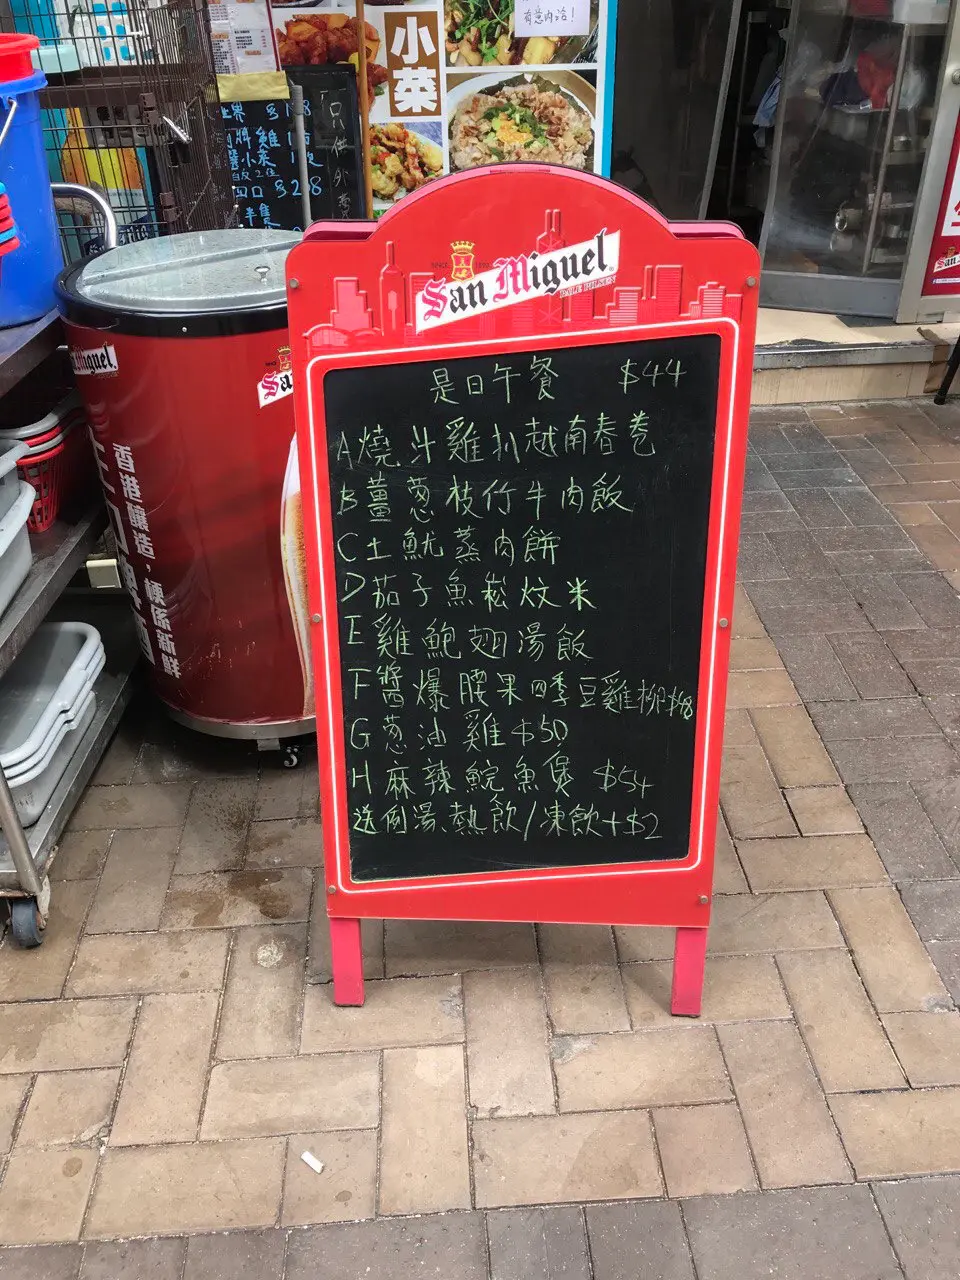 有意內洽!
小菜
San Miguel
PALE PILSEN
是日午餐 $44
A燒汁雞扒越南春卷
B薑葱枝竹牛肉飯
C土魷蒸肉餅
D茄子魚崧炆米
E雞鮑翅湯飯
F醬爆腰果四季豆雞柳$48
G葱油雞$50
H麻辣鯇魚煲 $54
送例湯.熱飲/凍飲+$2
San Miguel.
香港釀造，梗係新鮮